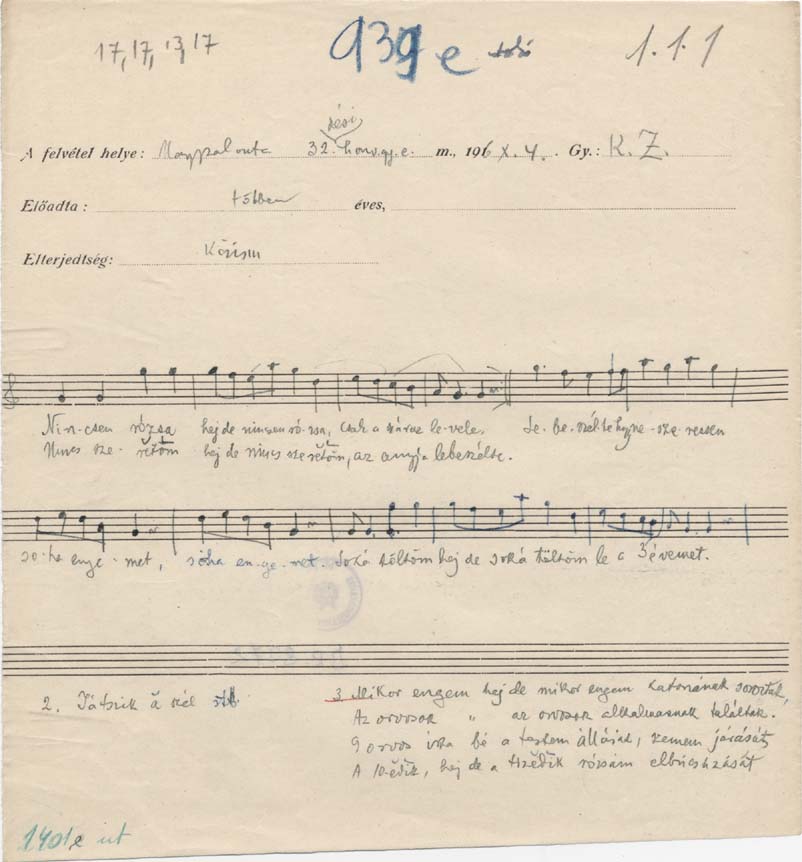 17, 17, 13, 17
939 e
1.1.1
rési
A felvétel helye: Magypalouta 32. honv.gy.e. m., 1916 X. 4. Gy.: K. Z.
Előadta: többen éves,
Elterjedtség: Közism
Nincsen rózsa hej de nincsen ró-zsa, csak a száraz le-vele. Le-be-szélte hogyne sze-ressen
Nincs sze-rětőm hej de nincs szerětőm, az anyja lebeszélte.
so-ha enge-met, soha en-ge-met. Soká töltöm hej de soká töltöm le a 3 évemet.
2. Játszik a szél stb
3. Mikor engem hej de mikor engem katonának soroztak,
Az orvosok " az orvosok alkalmasnak találtak.
9 orvos írta bé a testem állását, szemem járását
A 10-ědik, hej de a tizědik rózsám elbúcsúzását
1401e ut